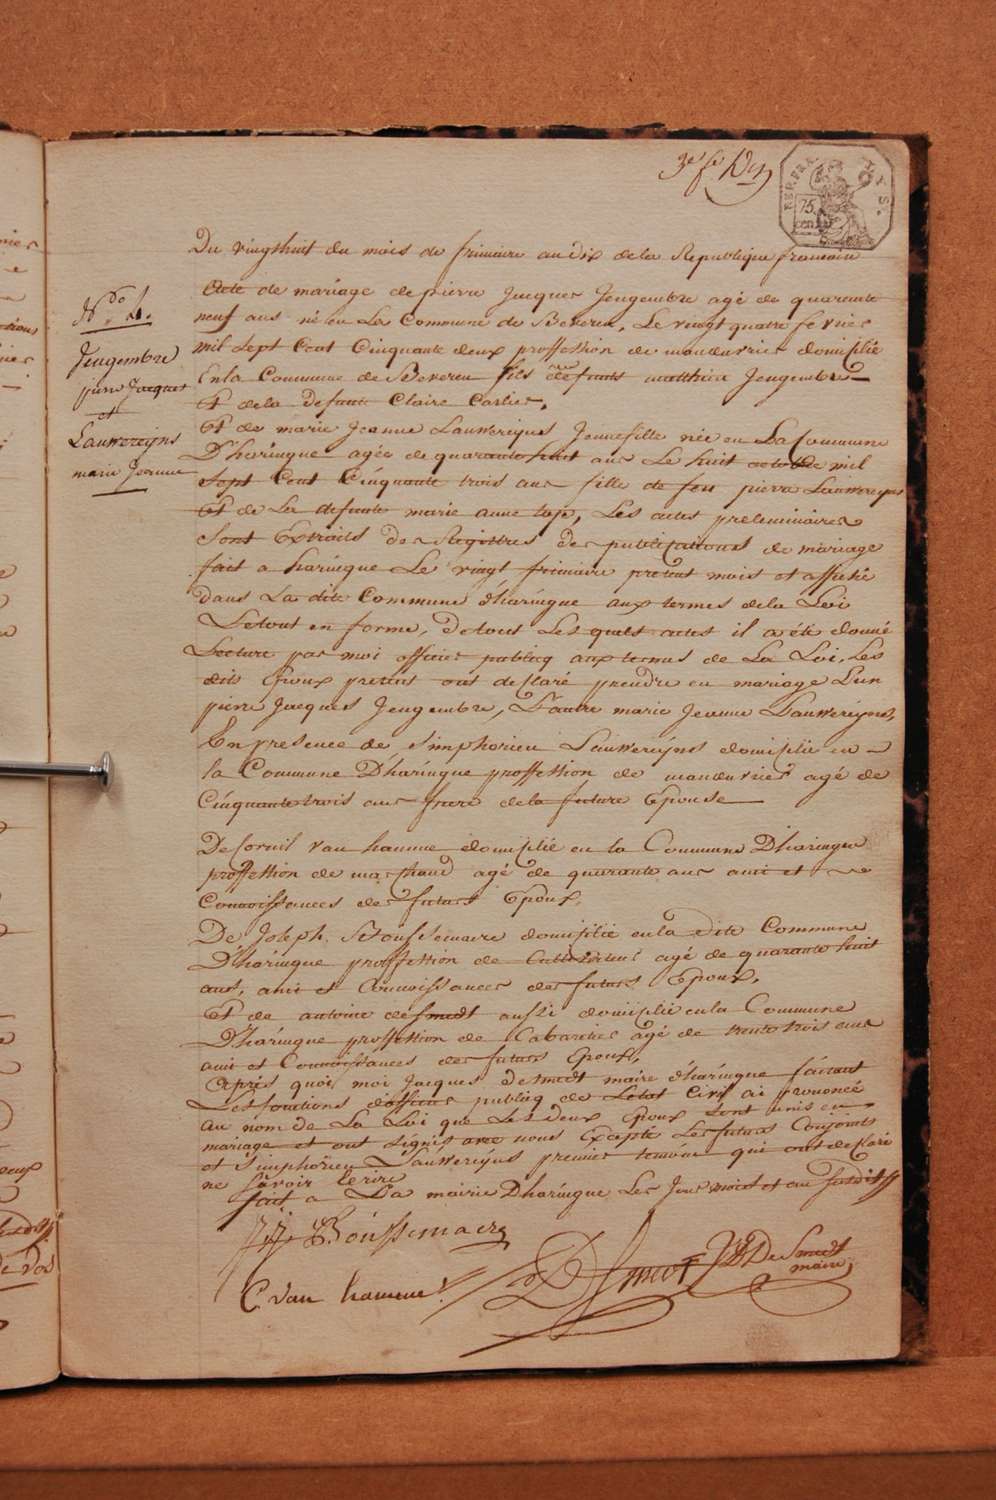 3e fe
REP. FRA.
75
cen
LYS.
Du vingthuit du mois de frimaire an dix de la Republique francaise
No. 4.
Jengembre
pierre Jacques
et
Lauwereijns
marie Jeanne
Acte de mariage de pierre Jacques Jengembre agé de quarante
neuf ans né en La Commune de Beveren, Le vingt quatre fevrier
mil sept Cent Cinquante deux proffession de manœuvrier domiplié
En la Commune de Beveren fils de feu matthieu Jengembre
Et de la Defunte Claire Carlier,
Et de marie Jeanne Lauwereijns Jeunefille née en La Commune
D'haringue agée de quarante huit ans Le huit octobre mil
Sept Cent Cinquante trois ans fille de feu pierre Lauwereijns
Et de La defunte marie anne top, Les actes preleminaires
Sont Extraits des Registres des publications de mariage
fait a haringue Le vingt frimaire present mois et affiché
dans La dite Commune d'haringue aux termes de la Loi
Le tout en forme, de tous Les quels actes il a été donné
Lecture par moi officier publicq aux termes de La Loi, Les
dits Epoux present ont declaré prendre en mariage L'un
pierre Jacques Jengembre, L'autre marie Jeanne Lauwereijns,
En presence de Simphorien Lauwereijns domiplié en
la Commune D'haringue proffession de manœuvrier agé de
Cinquante trois ans frere de la future Epouse
De Cornil van hamme domiplié en la Commune D'haringue
proffession de marchand agé de quarante ans ami et
Connoissances des futurs Epoux,
De Joseph Boussemaere domiplié en la dite Commune
D'haringue proffession de Cultivateur agé de quarante huit
ans, ami et Connoissances des futurs Epoux,
Et de antoine desmedt aussi domiplié en la Commune
D'haringue proffession de Cabaretier agé de trente trois ans
ami et Connoissances des futurs Epoux,
Après quoi moi Jacques desmedt maire d'haringue faisant
Les fonctions d'officier publicq de L'etat Civil ai prononcé
au nom de La Loi que Les deux Epoux sont unis en
mariage et ont signés avec nous Excepté Les futurs Conjoints
et Simphorien Lauwereijns premier temoin qui ont declaré
ne savoir ecrire
fait a La mairie D'haringue Les Jour mois et an susdits
Boussemaere
C. van hamme
DSmedt
De Smedt
maire